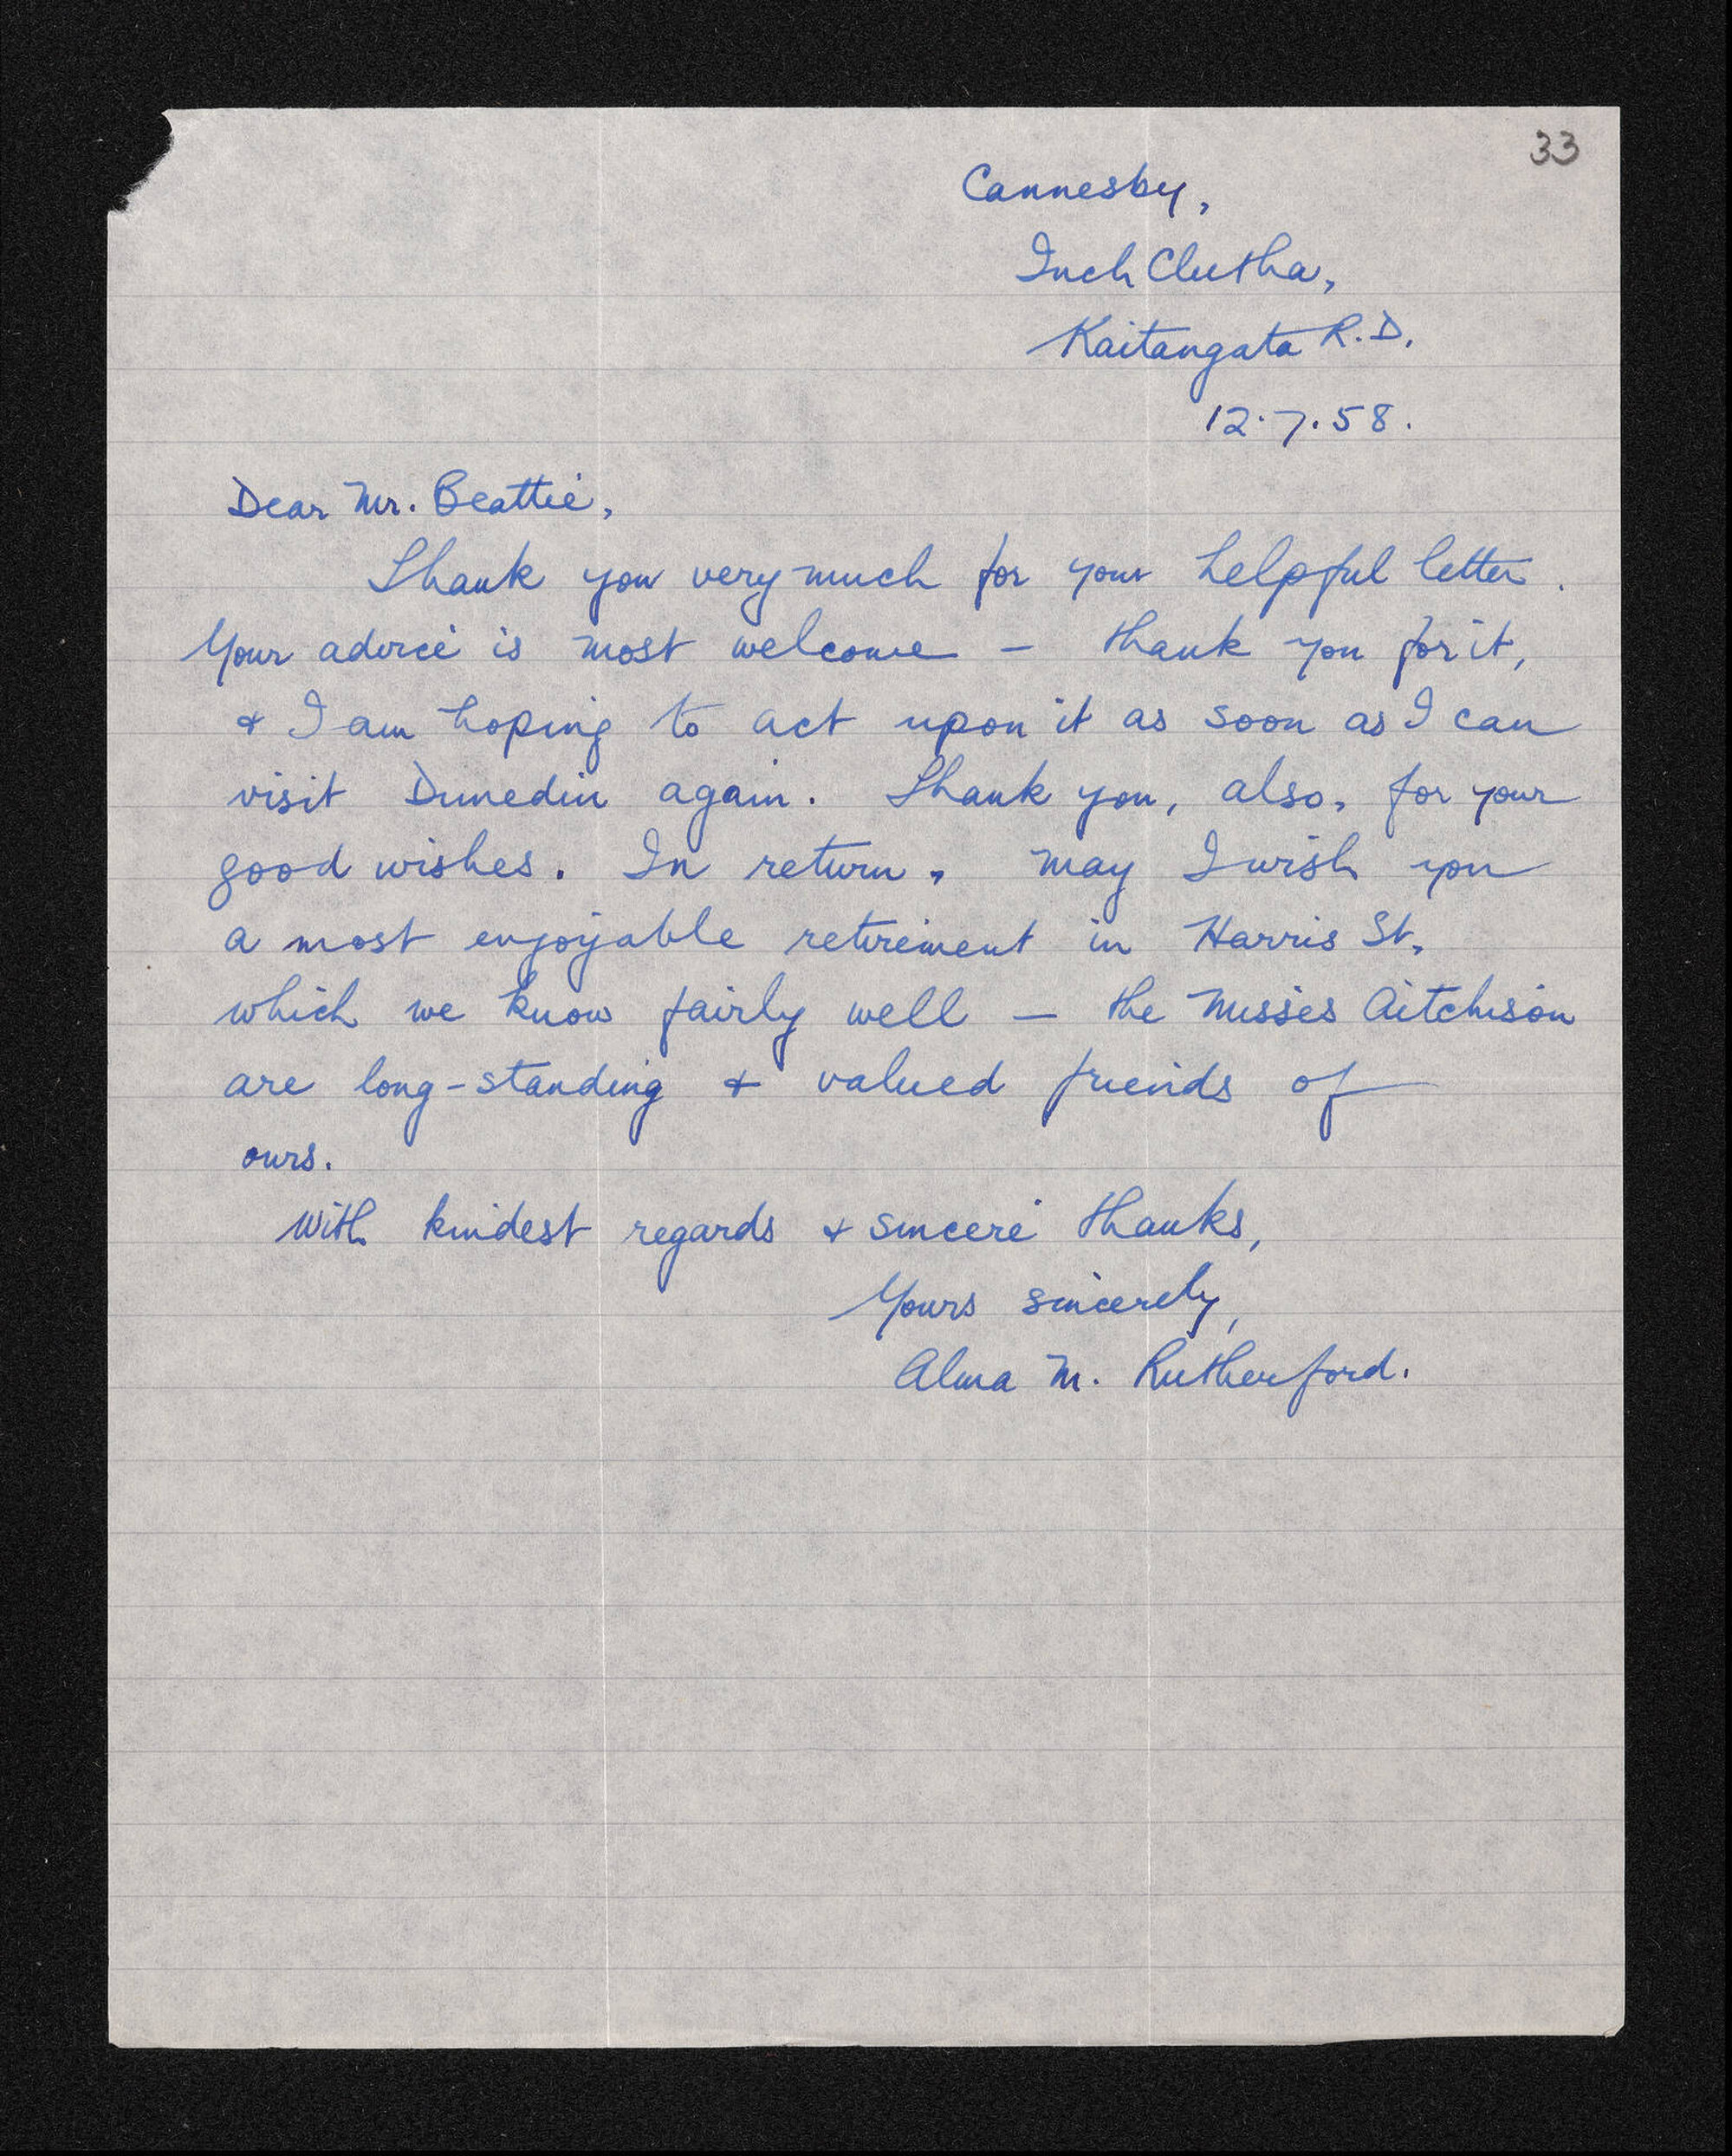 33
Cannesby,
Inch Clutha,
Kaitangata R.D.
12.7.58.
Dear Mr. Beattie,
Thank you very much for your helpful letter.
Your advice is most welcome – thank you for it,
& I am hoping to act upon it as soon as I can
visit Dunedin again. Thank you, also, for your
good wishes. In return, may I wish you
a most enjoyable retirement in Harris St,
which we know fairly well – the Misses Aitchison
are long-standing & valued friends of
ours.
With kindest regards & sincere thanks,
Yours sincerely,
Alma M. Rutherford.